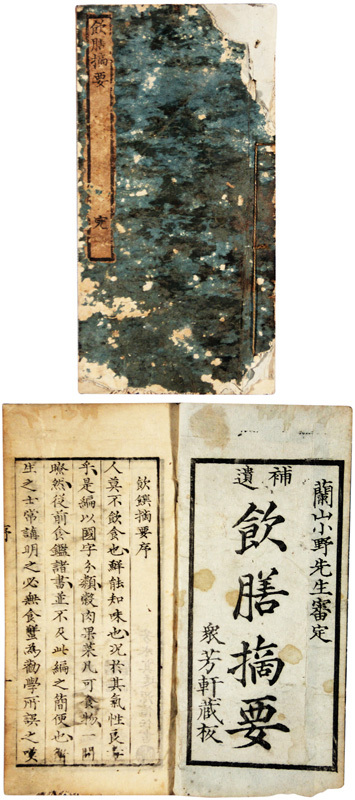 飲膳摘要
完
蘭山小野先生審定
補遺
飲膳摘要
衆芳軒蔵板
飲饌摘要序
人莫不飲食也鮮能知味也况於其氣性良毒
乎是編以國字分類穀肉果菜凡可食物一開
瞭然從前食鑑諸書並不及此編之簡便也
生之士常講明之必無食蟹為勸學所誤之嘆
序